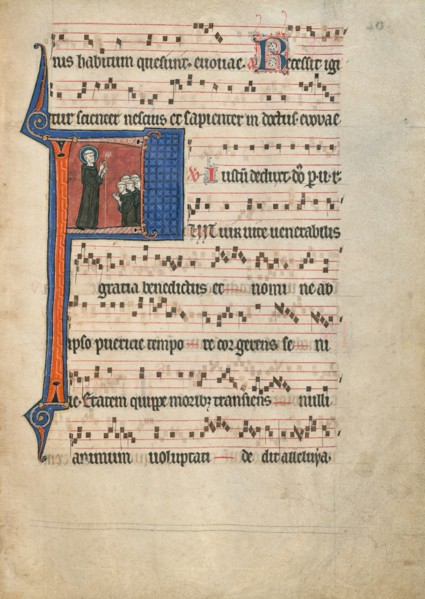 rus habitum quesiuit. euouae. Recessit igi
tur scienter nescius et sapienter in doctus euouae
Iustū deduxit dō p. ii. r
F uir uite uenerabilis
gratia benedictus et nomi ne ab
ipso puericie tempo re cor gerens se ni
le. Etatem quippe moribꝫ transiens nulli
animum uoluptati de dit alleluya.